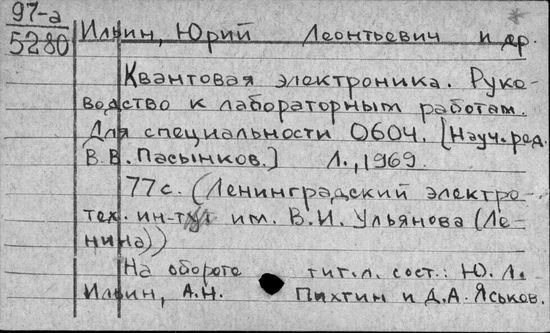 97-а
5280
Ильин, Юрий Леонтьевич и др.
Квантовая электроника. Руко-
водство к лабораторным работам.
Для специальности 0604. [Науч. ред.
В.В. Пасынков.] Л., 1969.
77 с. (Ленинградский электро-
тех. ин-т им. В.И. Ульянова (Ле-
нина))
На обороте тит. л. сост.: Ю. Л.
Ильин, А.Н. Пихтин и Д.А. Яськов.